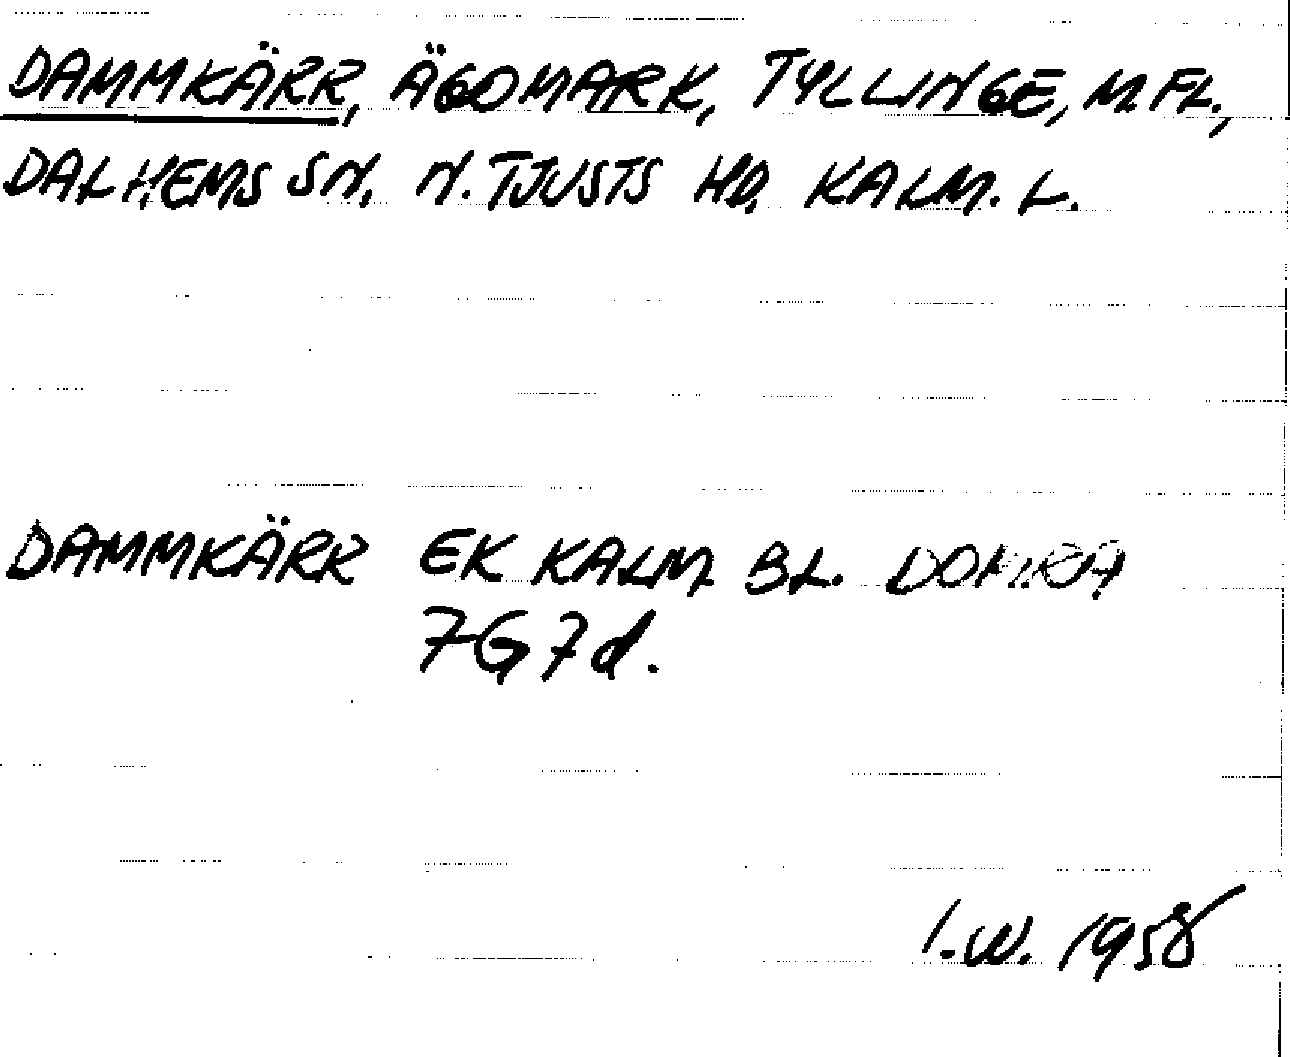 DAMMKÄRR, ÄGOMARK, TYLLINGE, M.FL.,
DALHEMS SN. N. TJUSTS HD. KALM. L.
DAMMKÄRR EK KALM BL.
7G7d.
I.W. 1958